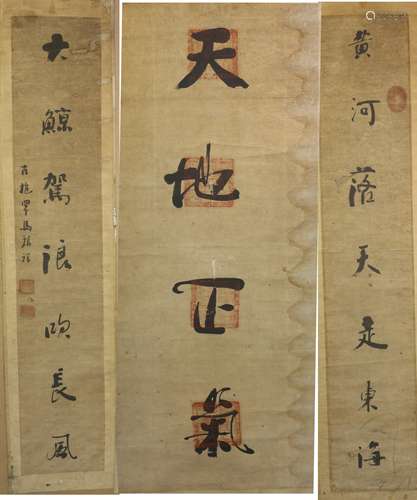 黄河落天走東海
天地正氣
大鯨駕浪吹長風